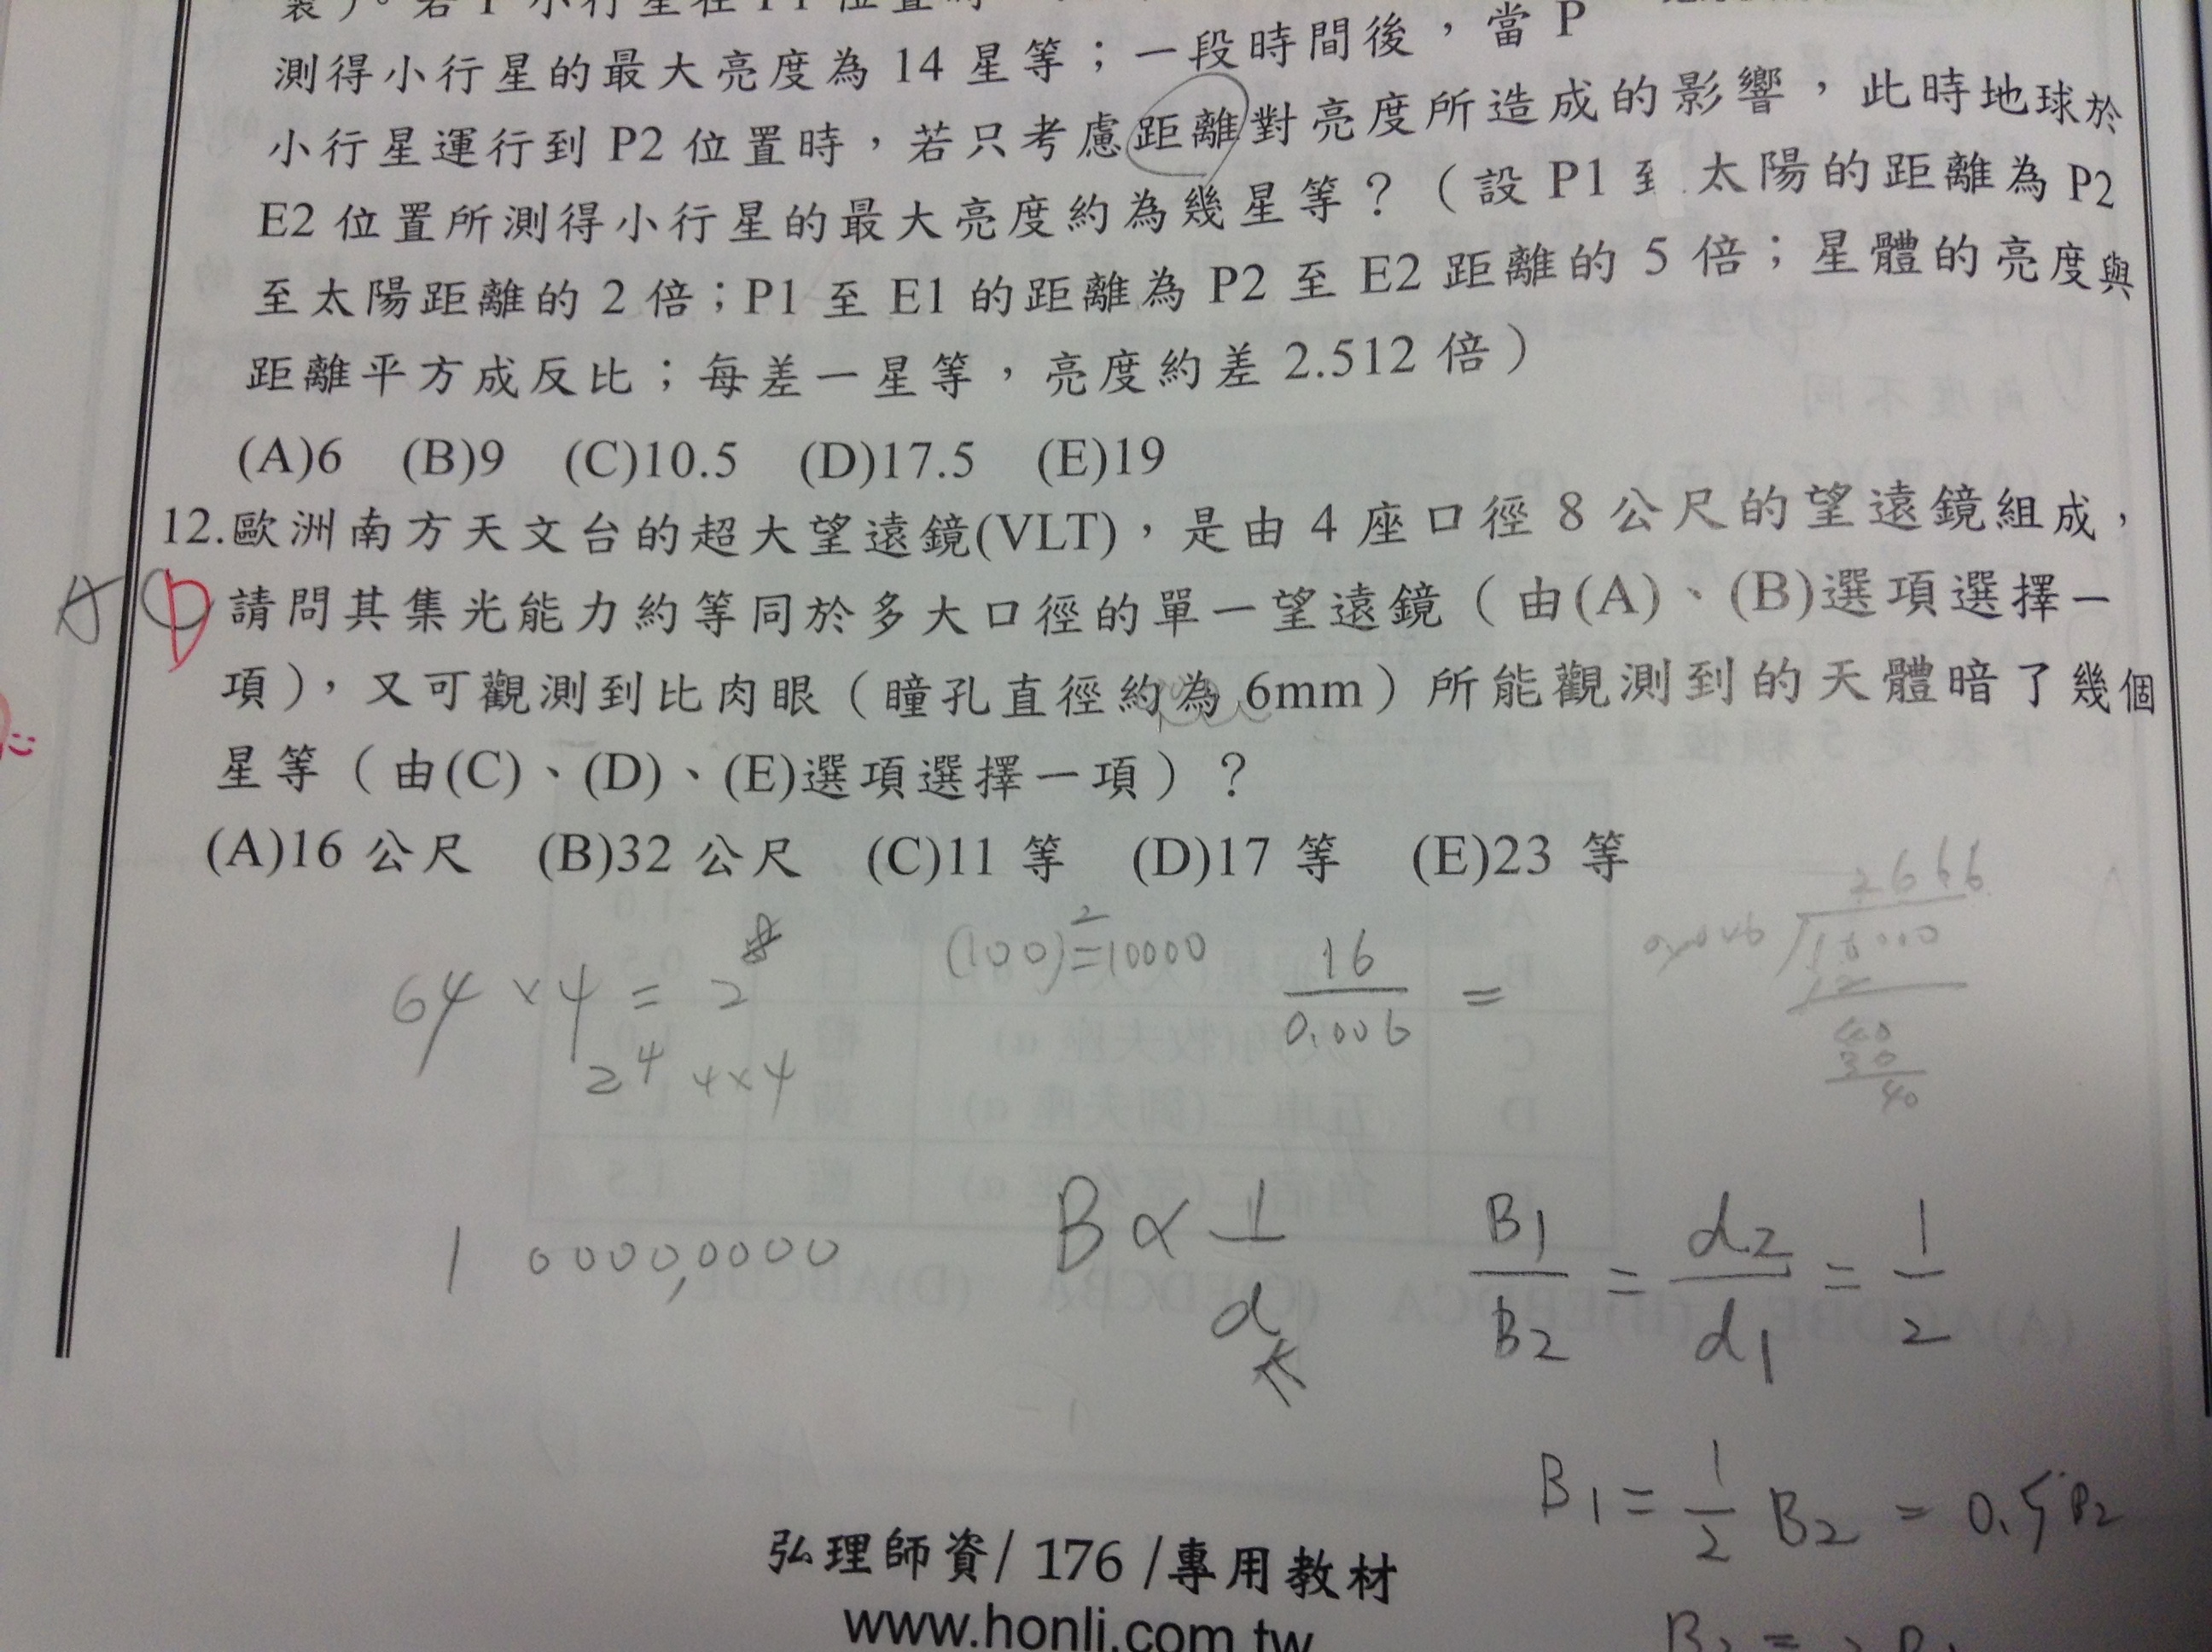 測得小行星的最大亮度為 14 星等；一段時間後，當 P
小行星運行到 P2 位置時，若只考慮距離對亮度所造成的影響，此時地球於
E2 位置所測得小行星的最大亮度約為幾星等？（設 P1 到 太陽的距離為 P2
至太陽距離的 2 倍；P1 至 E1 的距離為 P2 至 E2 距離的 5 倍；星體的亮度與
距離平方成反比；每差一星等，亮度約差 2.512 倍）
(A)6 (B)9 (C)10.5 (D)17.5 (E)19
12.歐洲南方天文台的超大望遠鏡(VLT)，是由 4 座口徑 8 公尺的望遠鏡組成，
A D 請問其集光能力約等同於多大口徑的單一望遠鏡（由(A)、(B)選項選擇一
項），又可觀測到比肉眼（瞳孔直徑約為 6mm）所能觀測到的天體暗了幾個
星等（由(C)、(D)、(E)選項選擇一項）？
(A)16 公尺 (B)32 公尺 (C)11 等 (D)17 等 (E)23 等
2666
64 × 4 = 2⁸
(100)²=10000
16/0.006 =
16000
12
40
2⁴ 4×4
1 0000,0000
B ∝ 1/d
B1/B2 = d2/d1 = 1/2
B1 = 1/2 B2 = 0.5 B2
弘理師資/ 176 /專用教材
www.honli.com.tw